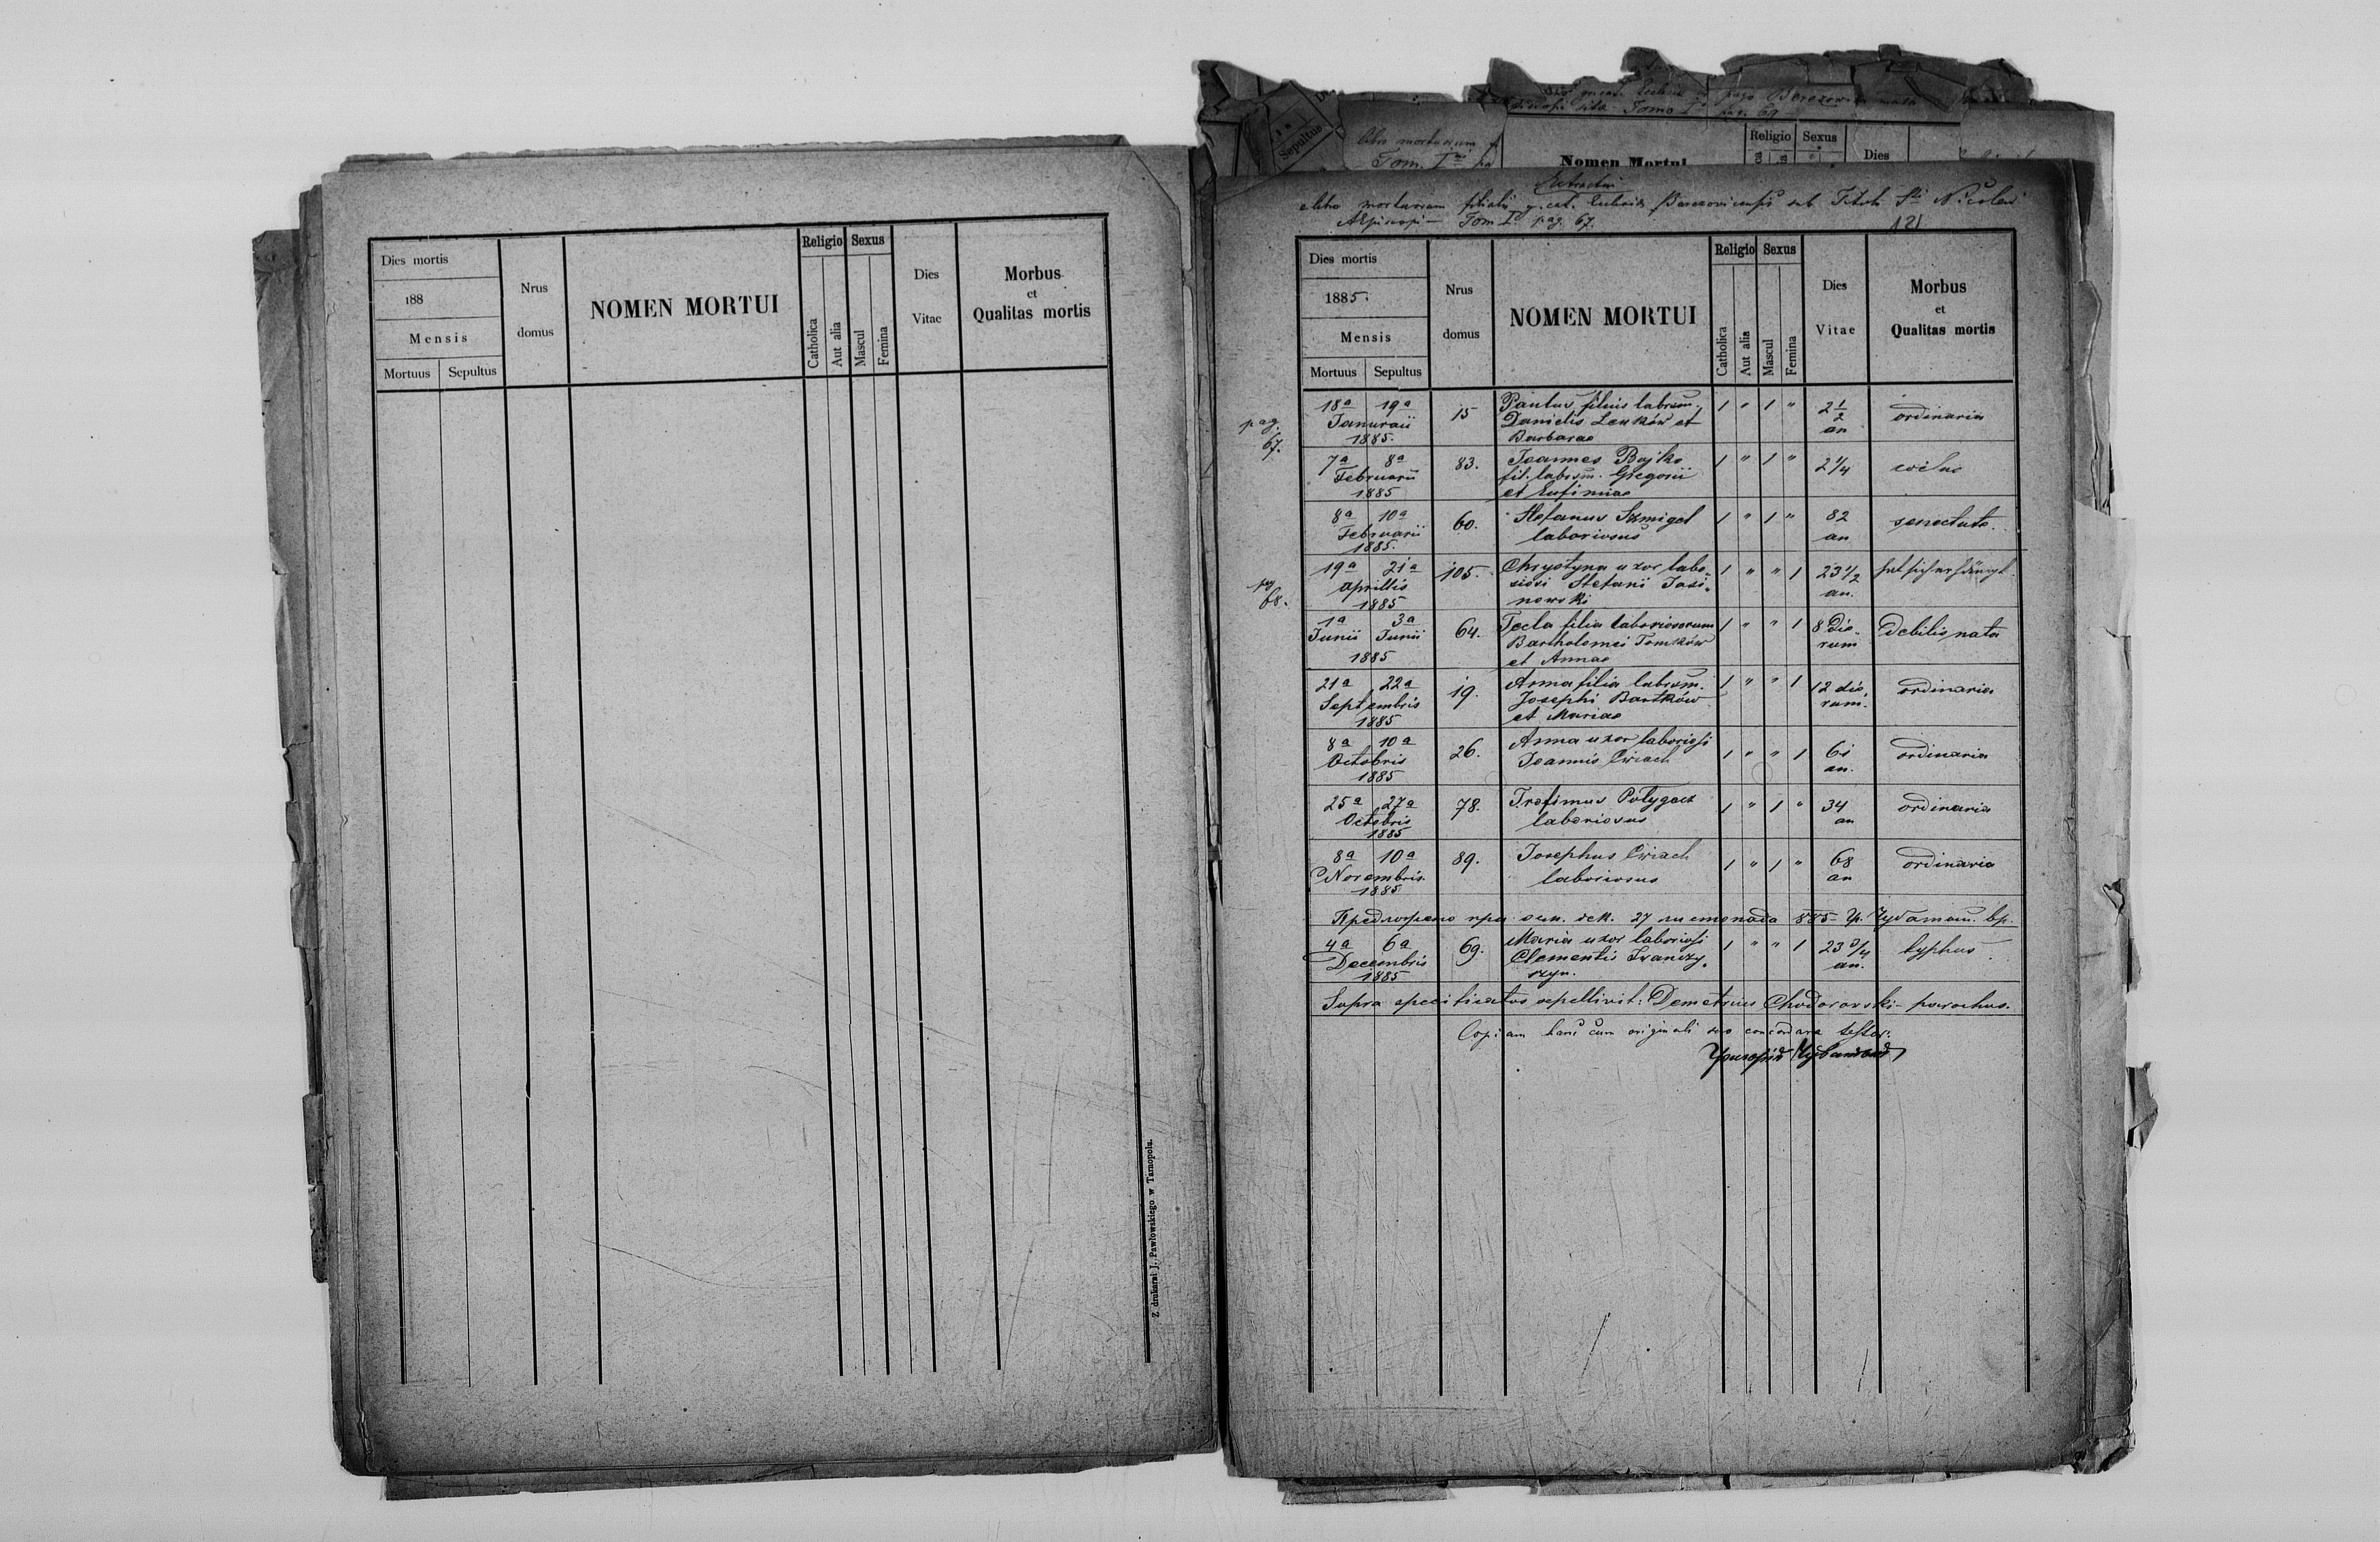 Dies mortis
188
Mensis
Mortuus Sepultus
Nrus
domus
NOMEN MORTUI
Religio Sexus
Catholica
Aut alia
Mascul
Femina
Dies
Vitae
Morbus
et
Qualitas mortis
Z drukarni J. Pawłowskiego w Tarnopolu.
Sepultus
Libro mortuorum
Tom. I
pago Berezowica
Tomo I pag. 69
Nomen Mortui
Religio Sexus
Dies
Extractus
e libro mortuorum filialis g. cat. Ecclesiae Berezovicensis sub Tituli Sti Nicolai
AEpiscopi — Tom I. pag. 67.
121
Dies mortis
1885.
Mensis
Mortuus Sepultus
Nrus
domus
NOMEN MORTUI
Religio Sexus
Catholica
Aut alia
Mascul
Femina
Dies
Vitae
Morbus
et
Qualitas mortis
pag.
67.
18a 19a
Januarii
1885.
15
Paulus filius labrsum.
Danielis Lewków et
Barbarae
1 " 1 "
2 1/2
an
ordinaria
7a 8a
Februarii
1885
83.
Joannes Bojko
fil. labrsm. Gregorii
et Eufimiae
1 " 1 "
2 1/4
8a 10a
Februarii
1885.
60.
Stefanus Szmigel
laboriosus
1 " 1 "
82
an
senectute.
pag
68.
19a 21a
Aprillis
1885
105.
Chrystyna uxor labo-
riosi Stefani Jasi-
nowski
1 " " 1
23 1/2
an.
1a 3a
Junii Junii
1885
64.
Tecla filia laboriosorum
Bartholomei Tomków
et Annae
1 " " 1
8 die-
rum
Debilis nata
21a 22a
Septembris
1885
19.
Anna filia labrsm.
Josephi Bartków
et Mariae
1 " " 1
12 die-
rum.
ordinaria
8a 10a
Octobris
1885
26.
Anna uxor laboriosi
Joannis Cwiach
1 " " 1
61
an.
ordinaria
25a 27a
Octobris
1885
78.
Trofimus Połygacz
laboriosus
1 " 1 "
34
an
ordinaria
8a 10a
Novembris
1885
89.
Josephus Cwiach
laboriosus
1 " 1 "
68
an
ordinaria
Предложено при дек. 27 листопада 885
4a 6a
Decembris
1885
69.
Maria uxor laboriosi
Clementis Iwanczy-
szyn.
1 " " 1
23 3/4
an.
typhus
Supra specificatos sepellivit: Demetrius Chodorowski - parochus.
Copiam hanc cum originali suo concordare testor: